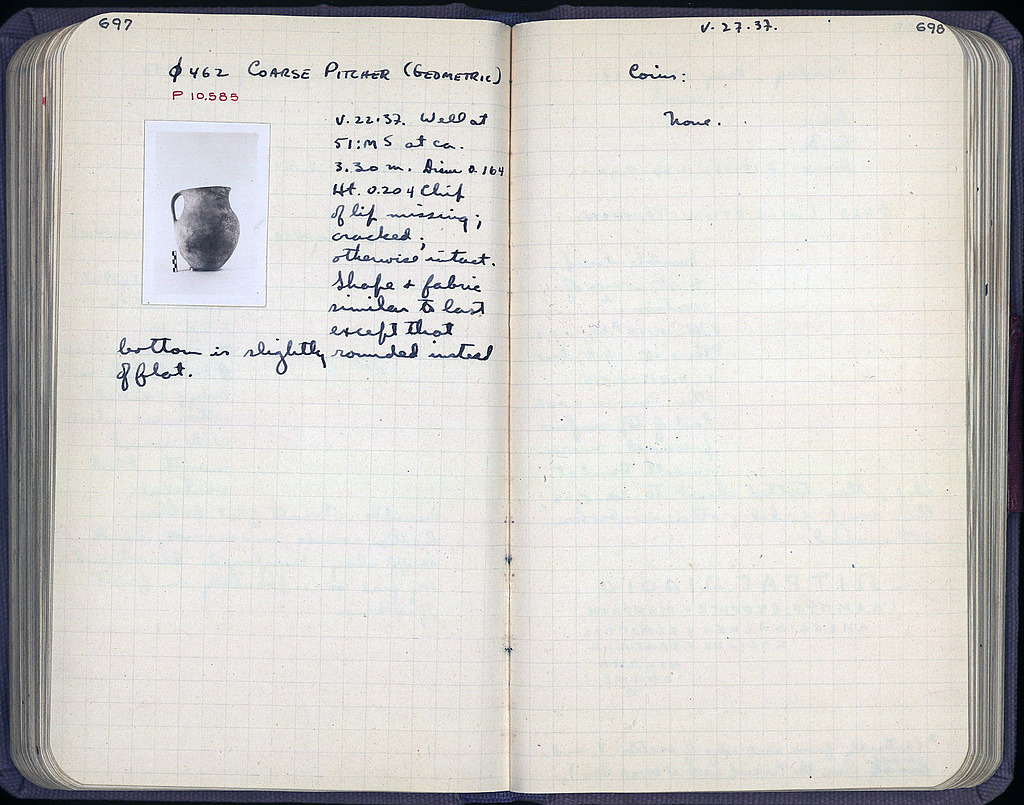 697
φ 462 COARSE PITCHER (GEOMETRIC)
P 10,585
V. 22.37. Well at
51:ΜΣ at ca.
3.30 m. Diam 0.164
Ht. 0.204 Chip
of lip missing;
cracked;
otherwise intact.
Shape + fabric
similar to last
except that
bottom is slightly rounded instead
of flat.
V. 27.37.
698
Coins:
None.